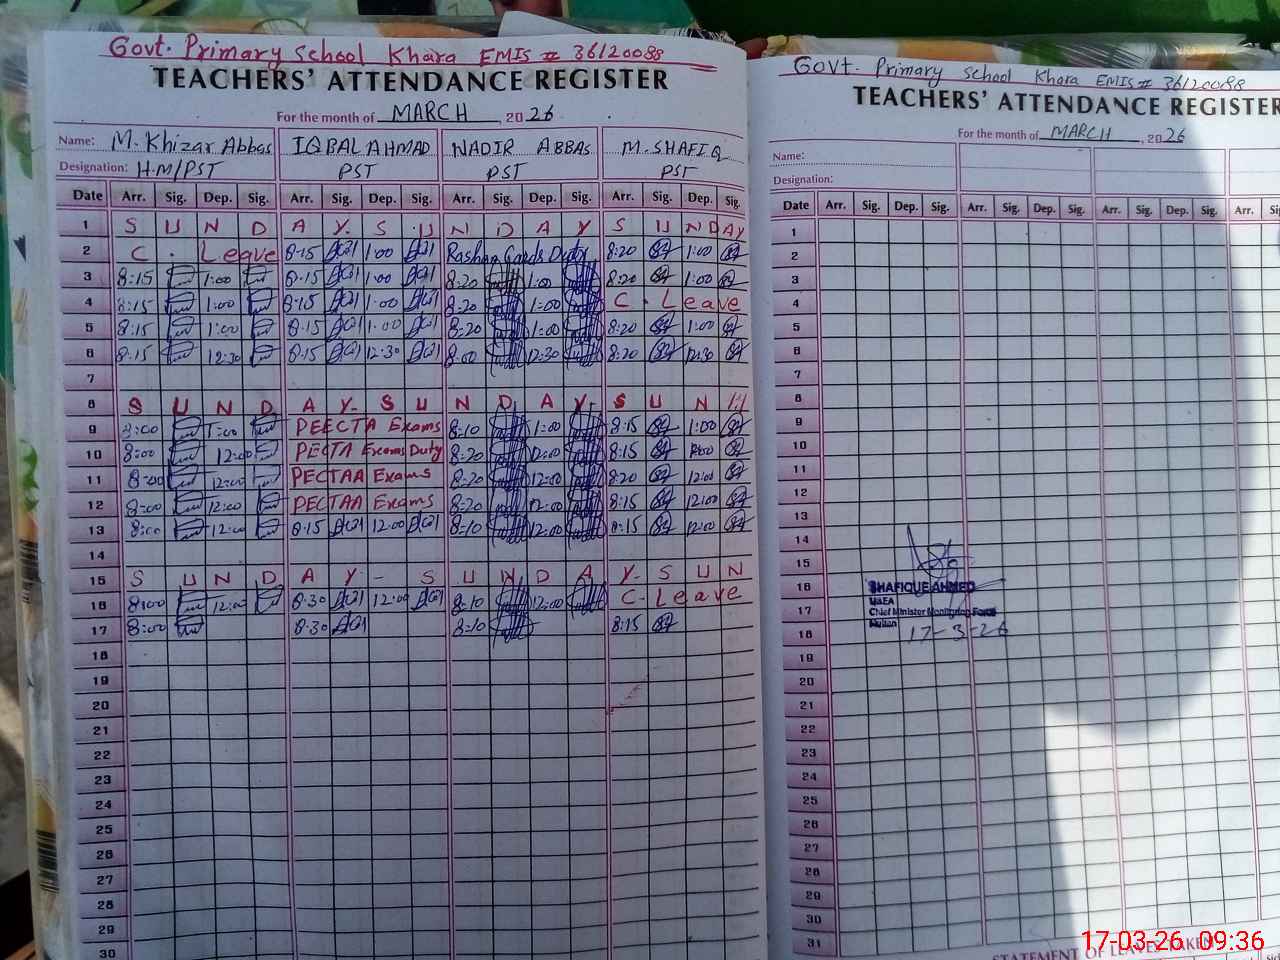 Govt. Primary School Khara EMIS # 36120088
TEACHERS' ATTENDANCE REGISTER
For the month of MARCH, 2026
Name: M. Khizar Abbas IQBAL AHMAD NADIR ABBAS M. SHAFIQ
Designation: H.M/PST PST PST PST
Date Arr. Sig. Dep. Sig. Arr. Sig. Dep. Sig. Arr. Sig. Dep. Sig. Arr. Sig. Dep. Sig.
1 S U N D A Y. S U N D A Y S U N D A Y
2 C. Leave 8:15 1:00 Rashan Cards Duty 8:20 1:00
3 8:15 1:00 8:15 1:00 8:20 1:00 8:20 1:00
4 8:15 1:00 8:15 1:00 8:20 1:00 C. Leave
5 8:15 1:00 8:15 1:00 8:20 1:00 8:20 1:00
6 8:15 12:30 8:15 12:30 8:00 12:30 8:20 12:30
7
8 S U N D A Y - S U N D A Y - S U N
9 8:00 1:00 PEECTA Exams 8:10 1:00 8:15 1:00
10 8:00 12:00 PECTA Exams Duty 8:20 12:00 8:15
11 8:00 12:00 PECTAA Exams 8:20 12:00 8:20 12:00
12 8:00 12:00 PECTAA Exams 8:20 12:00 8:15 12:00
13 8:00 12:00 8:15 12:00 8:10 12:00 8:15 12:00
14
15 S U N D A Y - S U N D A Y - S U N
16 8:00 12:00 8:30 12:00 8:10 12:00 C. Leave
17 8:00 8:30 8:10 8:15
18
19
20
21
22
23
24
25
26
27
28
29
30
Govt. Primary School Khara EMIS # 36120088
TEACHERS' ATTENDANCE REGISTER
For the month of MARCH, 2026
Name:
Designation:
Date Arr. Sig. Dep. Sig. Arr. Sig. Dep. Sig. Arr. Sig. Dep. Sig. Arr.
1
2
3
4
5
6
7
8
9
10
11
12
13
14
15
16 SHAFIQUE AHMED
MEA
17 Chief Minister Monitoring Force
Multan
18 17-3-26
19
20
21
22
23
24
25
26
27
28
29
30
31
STATEMENT OF LEAVES TAKEN
17-03-26 09:36